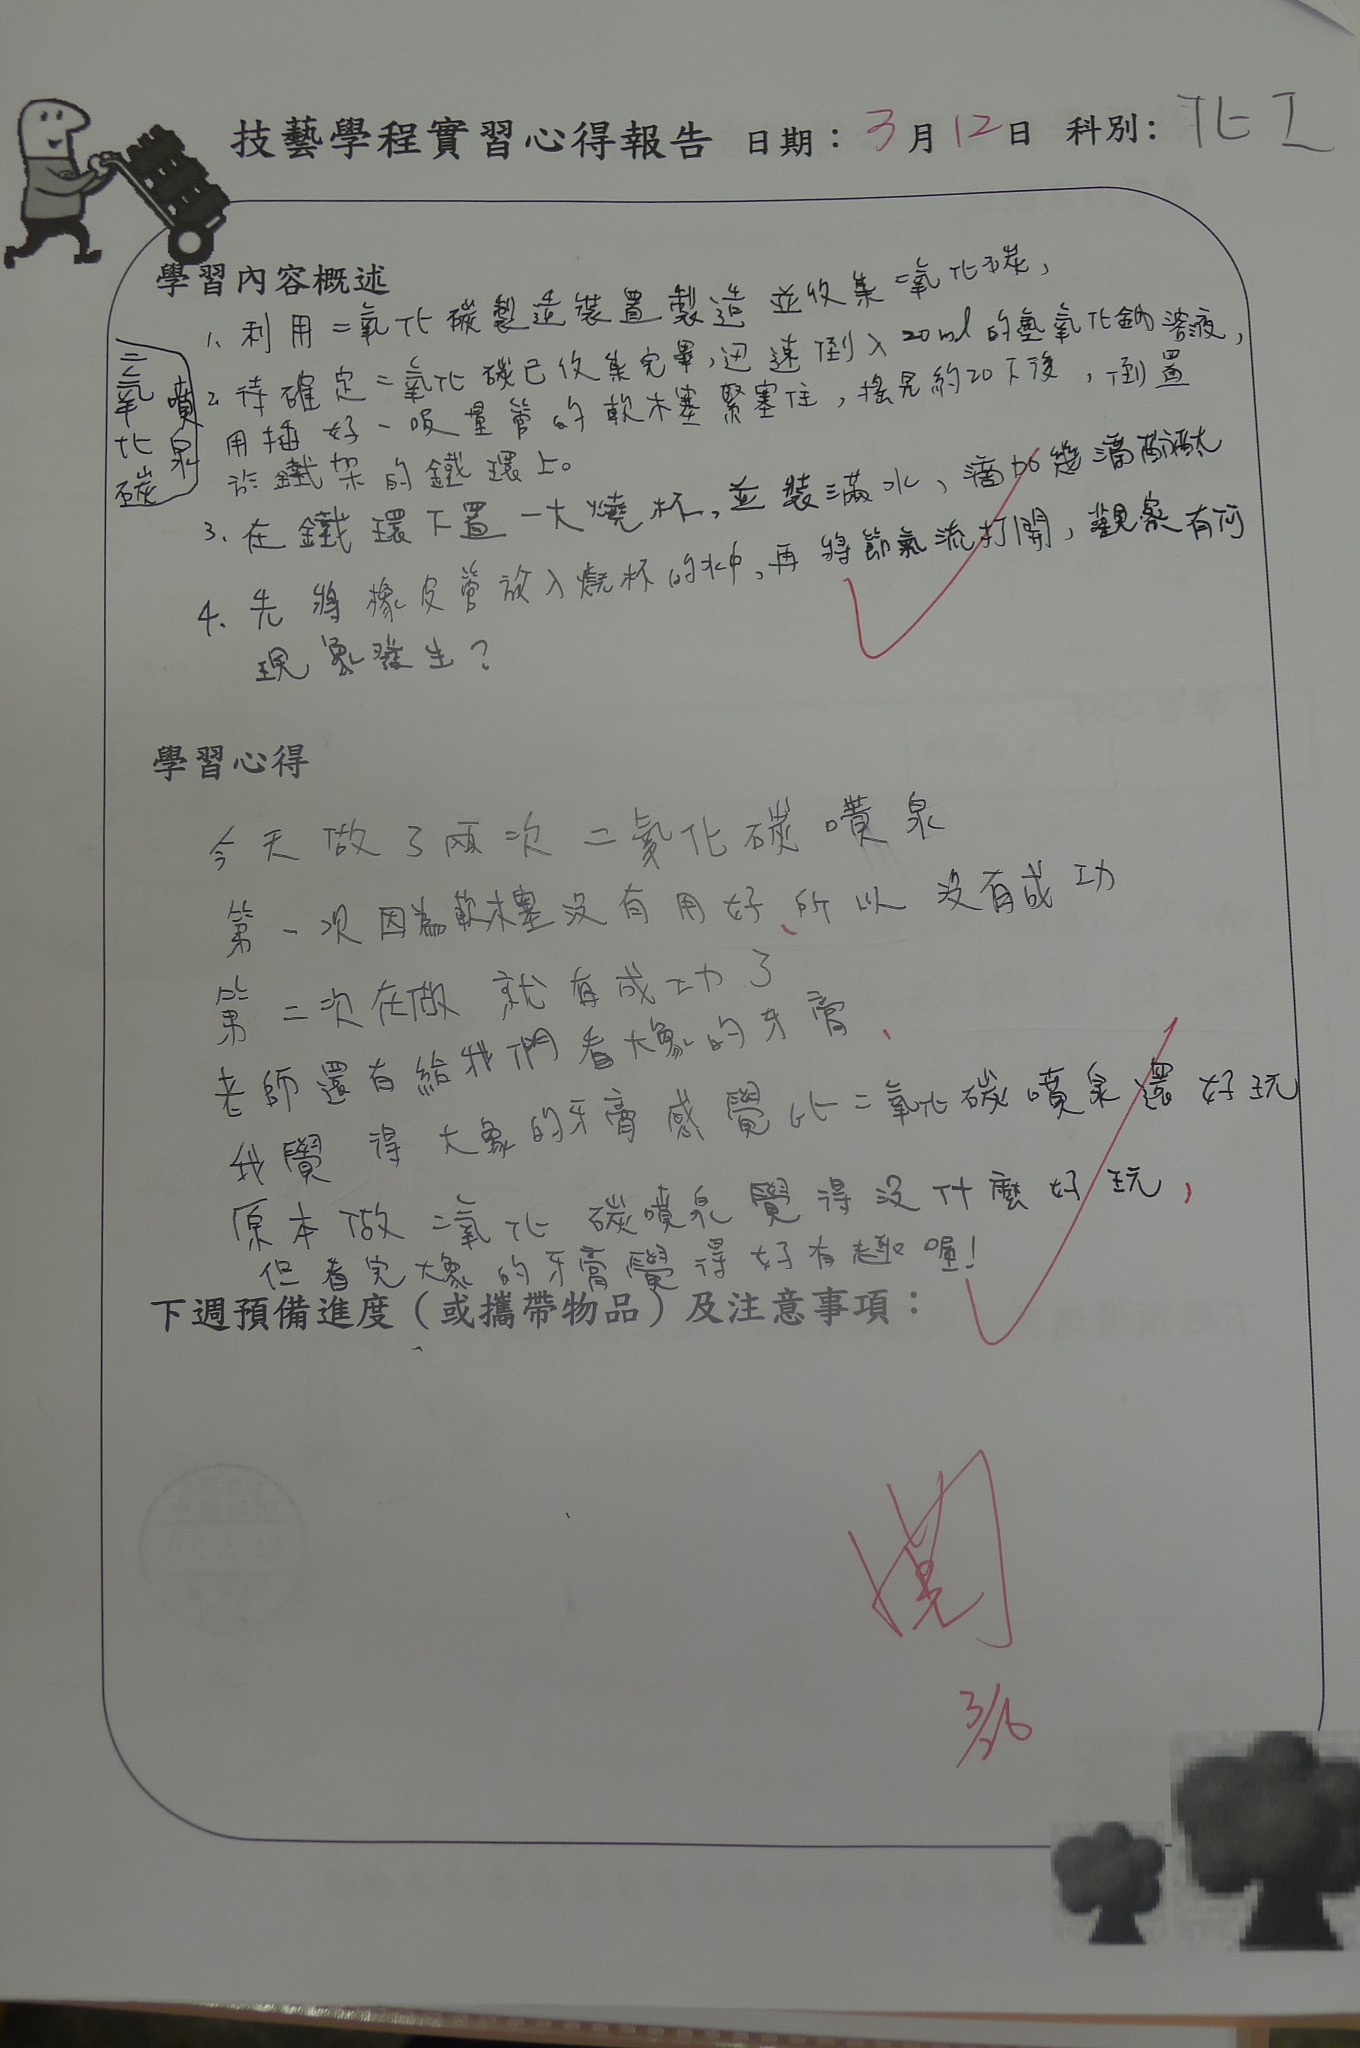 技藝學程實習心得報告 日期：3月12日 科別：化工
學習內容概述
二氧化碳
噴泉
1. 利用二氧化碳製造裝置製造並收集二氧化碳，
2. 待確定二氧化碳已收集完畢，迅速倒入20ml的氫氧化鈉溶液，
用插好一吸量管的軟木塞緊塞住，搖晃約20下後，倒置
於鐵架的鐵環上。
3. 在鐵環下置一大燒杯，並裝滿水，滴加幾滴酚酞
4. 先將橡皮管放入燒杯的水中，再將節氣流打開，觀察有何
現象發生？
學習心得
今天做了兩次二氧化碳噴泉
第一次因為軟木塞沒有用好、所以沒有成功
第二次在做就有成功了
老師還有給我們看大象的牙膏、
我覺得大象的牙膏感覺比二氧化碳噴泉還好玩
原本做二氧化碳噴泉覺得沒什麼好玩，
但看完大象的牙膏覺得好有趣喔！
下週預備進度（或攜帶物品）及注意事項：
3/26